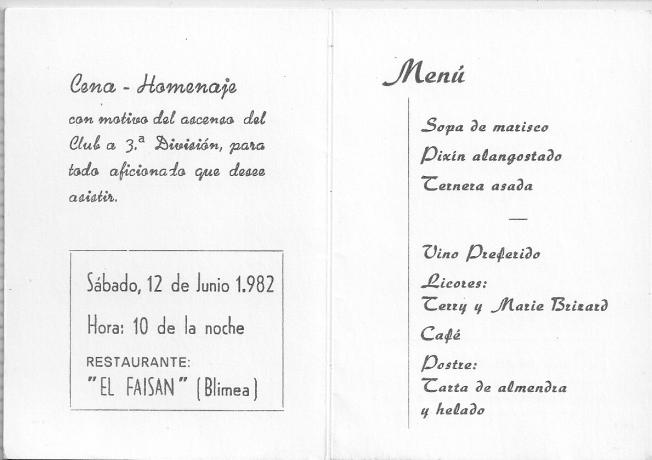 Cena - Homenaje
con motivo del ascenso del
Club a 3.ª División, para
todo aficionado que desee
asistir.
Sábado, 12 de Junio 1.982
Hora: 10 de la noche
RESTAURANTE:
"EL FAISAN" (Blimea)
Menú
Sopa de marisco
Pixín alangostado
Ternera asada
—
Vino Preferido
Licores:
Terry y Marie Brizard
Café
Postre:
Tarta de almendra
y helado